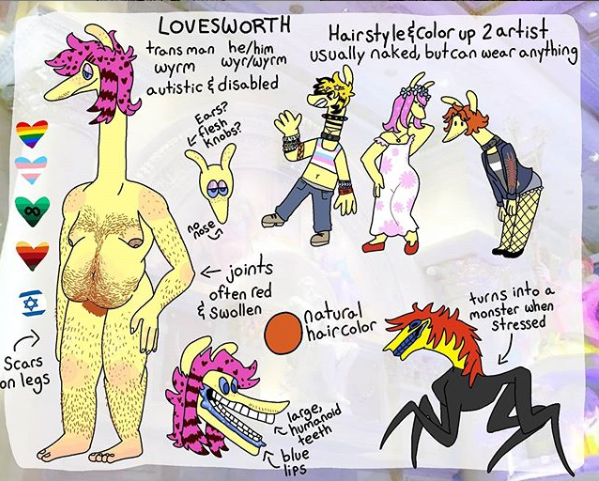 LOVESWORTH
trans man he/him
wyrm wyr/wyrm
autistic & disabled
Hairstyle & color up 2 artist
usually naked, but can wear anything
Ears?
flesh
knobs?
no
nose
joints
often red
& swollen
natural
hair color
turns into a
monster when
stressed
Scars
on legs
large,
humanoid
teeth
blue
lips